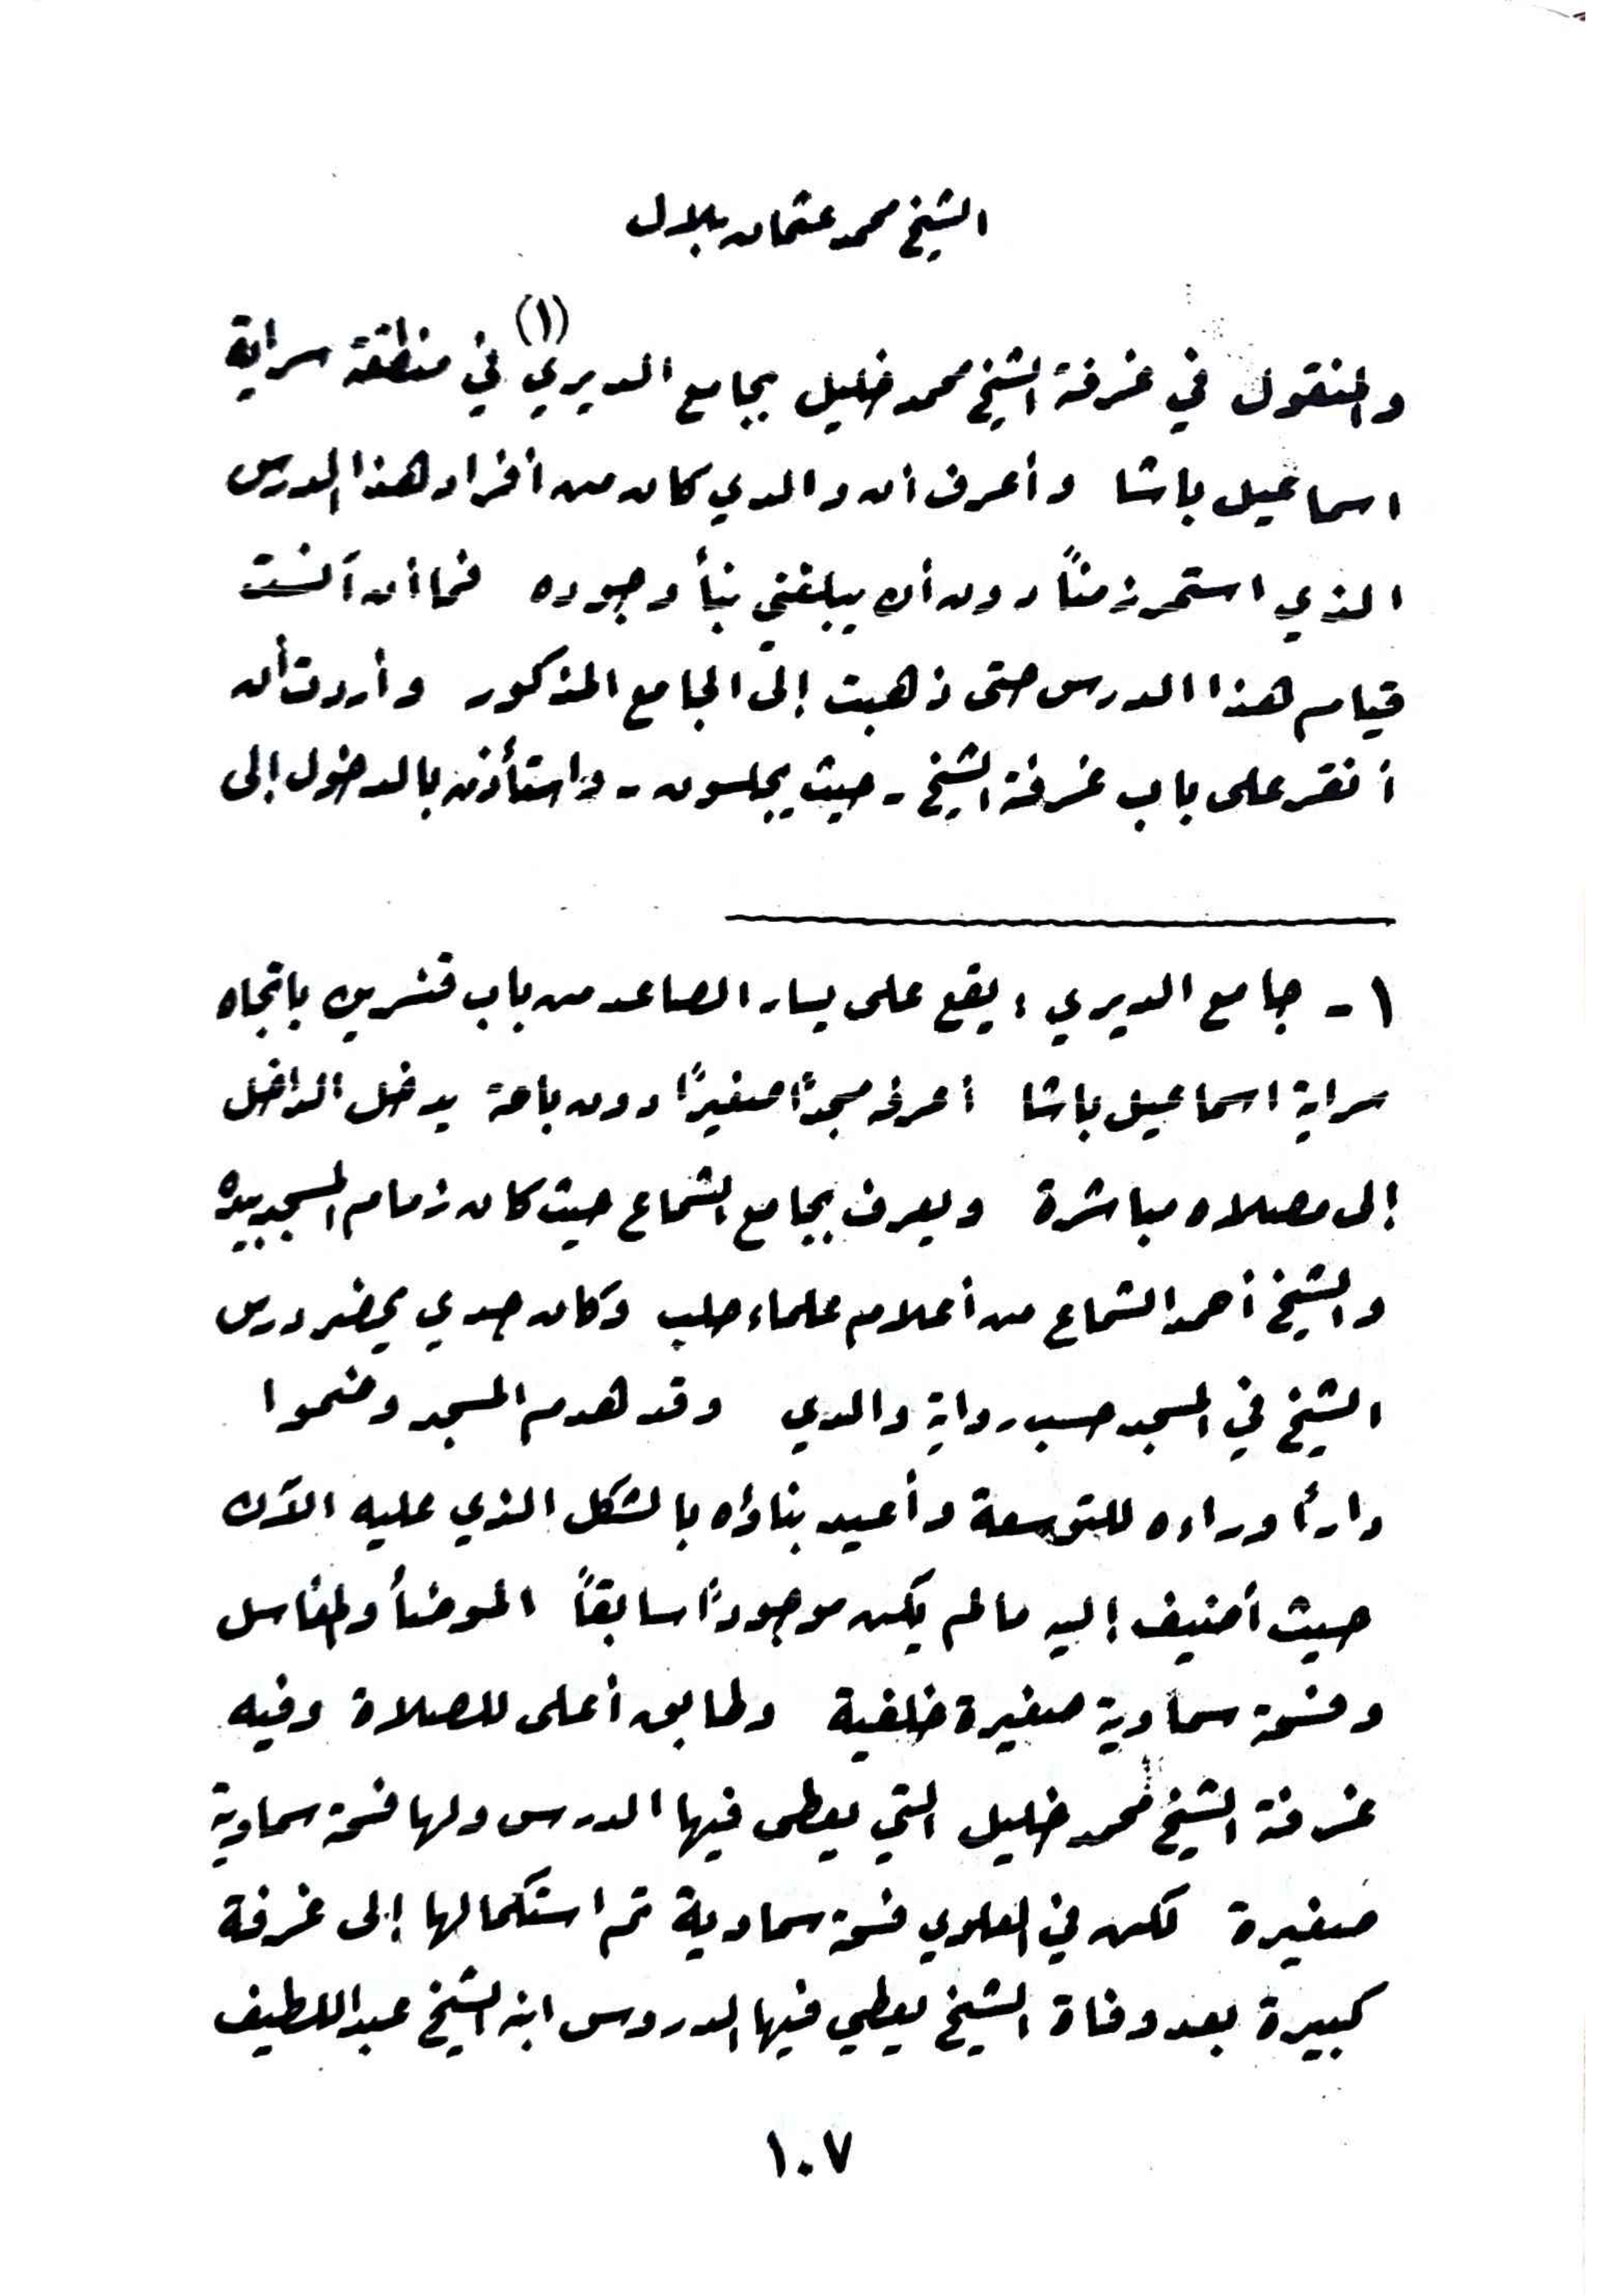 الشيخ محمد عثمان بلال
والمنقول في غرفة الشيخ محمد خليل بجامع الديري (١) في منطقة سراية
اسماعيل باشا وأعرف أن والدي كان من أفراد هذا الدرس
الذي استمر زمناً دون أن يبلغني نبأ وجوده فما أن آنست
قيام هذا الدرس حتى ذهبت إلى الجامع المذكور وأردت أن
أنقر على باب غرفة الشيخ - حيث يجلسون - واستأذن بالدخول إلى
١ - جامع الديري : يقع على يسار الصاعد من باب قنسرين باتجاه
سراية اسماعيل باشا أعرفه مسجداً صغيراً دون باحة يدخل الداخل
إلى مصلاه مباشرة ويعرف بجامع الشماع حيث كان زمام المسجد بيده
والشيخ أحمد الشماع من أعلام علماء حلب وكان جدي يحضر درس
الشيخ في المسجد حسب رواية والدي وقد هدم المسجد وضموا
داراً وراءه للتوسعة وأعيد بناؤه بالشكل الذي عليه الآن
حيث أضيف إليه ما لم يكن موجوداً سابقاً الموضأ والمغاسل
وفسحة سماوية صغيرة خلفية وطابق أعلى للصلاة وفيه
غرفة الشيخ محمد خليل التي يعطى فيها الدرس ولها فسحة سماوية
صغيرة لكن في العلوي فسحة سماوية تم استكمالها إلى غرفة
كبيرة بعد وفاة الشيخ يعطي فيها الدروس ابنه الشيخ عبد اللطيف
١٠٧